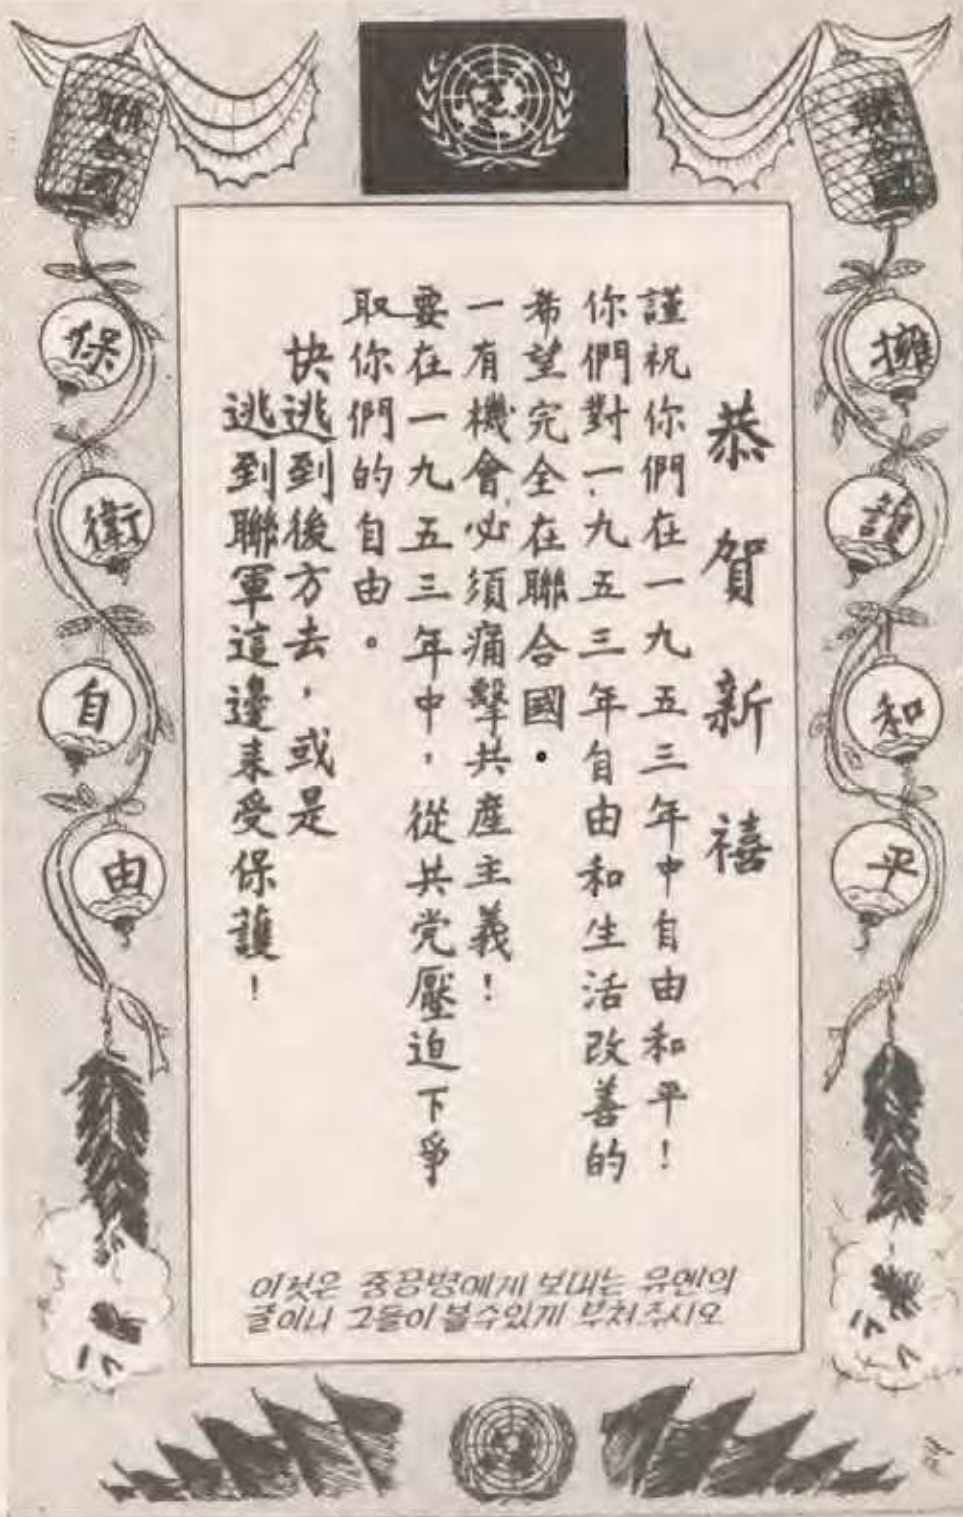 聯合國
擁護和平
聯合國
保衛自由
恭賀新禧
謹祝你們在一九五三年中自由和平！
你們對一九五三年自由和生活改善的
希望完全在聯合國．
一有機會，必須痛擊共產主義！
要在一九五三年中，從共党壓迫下爭
取你們的自由。
快逃到後方去，或是
逃到聯軍這邊来受保護！
이것은 중공병에게 보내는 유엔의
글이니 그들이 볼수있게 부처주시오